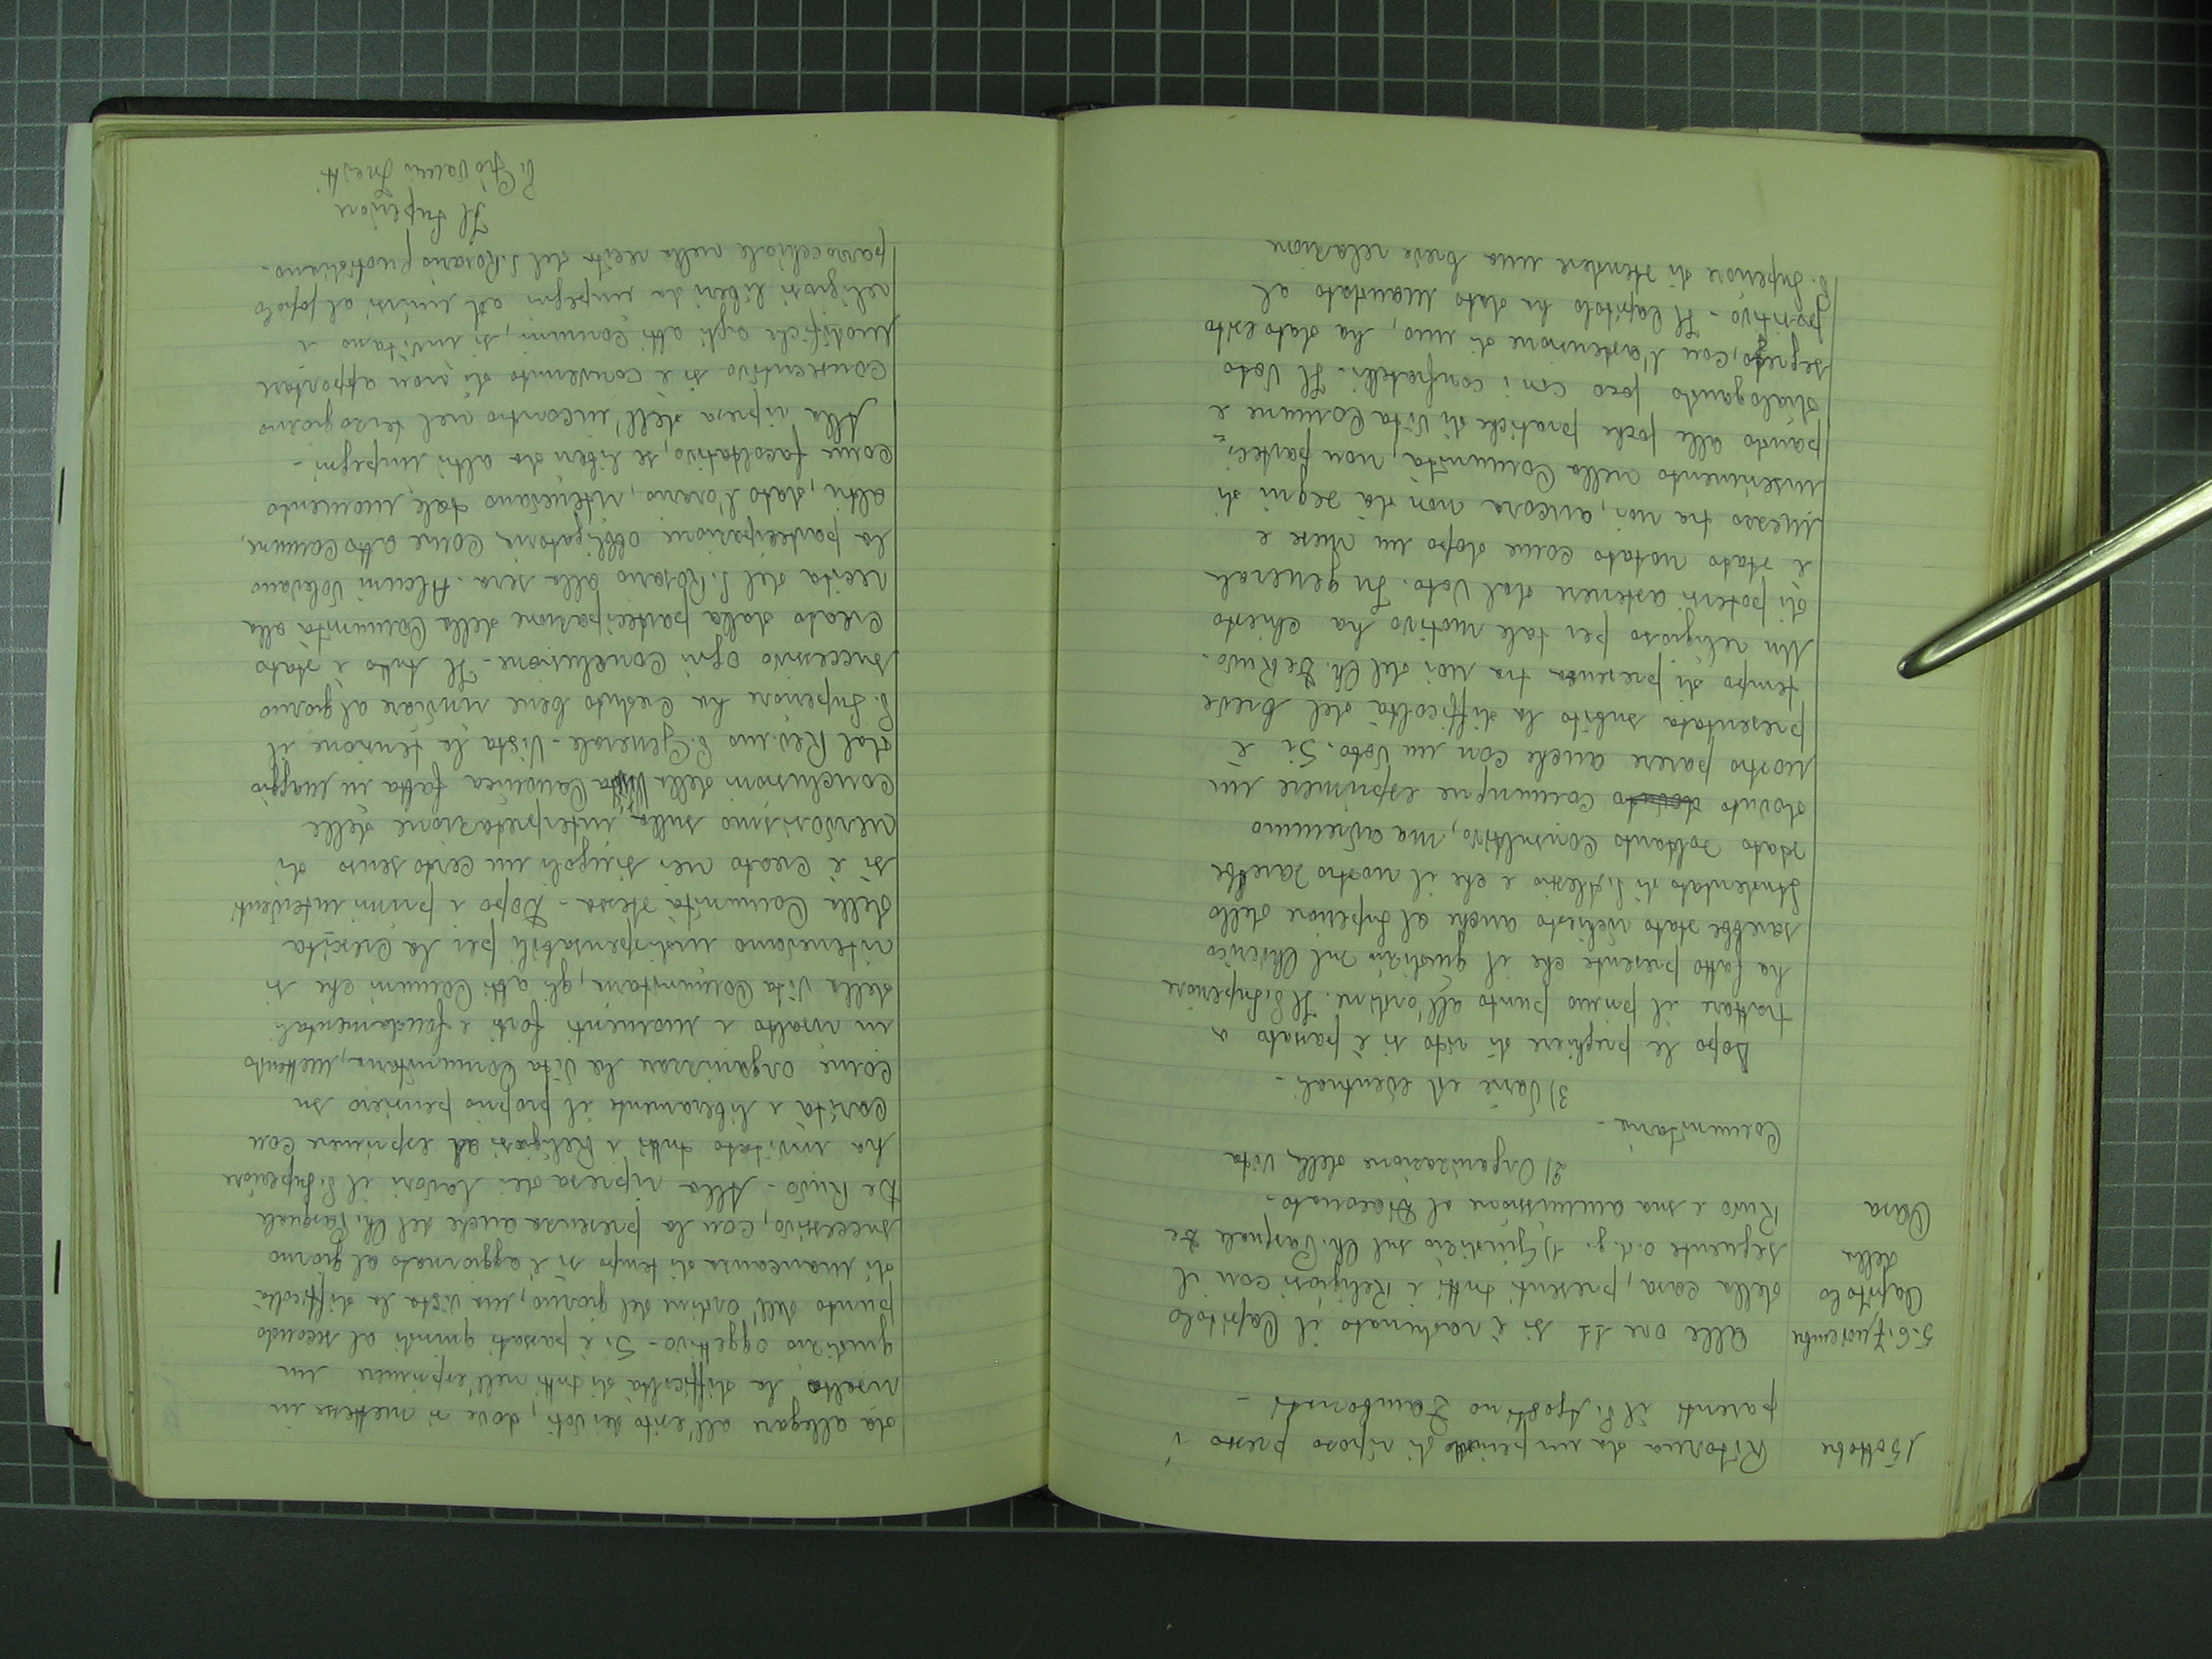 15 ottobre
Ritorna da un periodo di riposo presso i
parenti il P. Agostino Zamboristi -
5.6.7 novembre
Capitolo
della
Casa
Alle ore 11 si è radunato il Capitolo
della casa, presenti tutti i Religiosi con il
seguente o.d.g. 1) Giudizio sul Ch. Pasquale De
Ruvo e sua ammissione al Diaconato -
2) Organizzazione della vita
Comunitaria -
3) Varie ed eventuali -
Dopo le preghiere di rito si è passato a
trattare il primo punto all'ordine. Il P. Superiore
ha fatto presente che il giudizio sul Chierico
sarebbe stato richiesto anche al Superiore dello
Studentato di S. Alessio e che il nostro sarebbe
stato soltanto Consultivo, ma avremmo
dovuto dovuto comunque esprimere un
nostro parere anche con un Voto. Si è
presentata subito la difficoltà del breve
tempo di presenza tra noi del Ch. De Ruvo.
Un religioso per tale motivo ha chiesto
di potersi astenere dal Voto. In generale
è stato notato come dopo un mese e
mezzo tra noi, ancora non dà segni di
inserimento nella Comunità, non parteci=
pando alle poche pratiche di Vita Comune e
dialogando poco con i confratelli. Il Voto
segreto, con l'astensione di uno, ha dato esito
positivo - Il Capitolo ha dato mandato al
P. Superiore di stendere una breve relazione
da allegare all'esito dei voti, dove si mettesse in
risalto la difficoltà di tutti nell'esprimere un
giudizio oggettivo - Si è passati quindi al secondo
punto dell'Ordine del giorno, ma vista la difficoltà
di mancanza di tempo si è aggiornato al giorno
successivo, con la presenza anche del Ch. Pasquale
De Ruvo - Alla ripresa dei lavori il P. Superiore
ha invitato tutti i Religiosi ad esprimere con
carità e liberamente il proprio pensiero su
come organizzare la Vita Comunitaria, mettendo
in risalto i momenti forti e fondamentali
della Vita Comunitaria, gli atti Comuni che si
ritenevano indispensabili per la crescita
della Comunità stessa - Dopo i primi interventi
si è creato nei singoli un certo senso di
nervosismo sulla interpretazione delle
conclusioni della Visita Canonica fatta in maggio
dal Rev.mo P. Generale - Vista la tensione il
P. Superiore ha creduto bene rinviare al giorno
successivo ogni Conclusione - Il tutto è stato
creato dalla partecipazione della Comunità alla
recita del S. Rosario alla sera. Alcuni volevano
la partecipazione obbligatoria come atto Comune,
altri, dato l'orario, ritenevano tale momento
come facoltativo, se liberi da altri impegni -
Alla ripresa dell'incontro nel terzo giorno
consecutivo si è convenuto di non apportare
modifiche agli atti comuni, si invitano i
religiosi liberi da impegni ad unirsi al popolo
parrocchiale nella recita del S. Rosario quotidiano -
Il Superiore
P. Giovanni